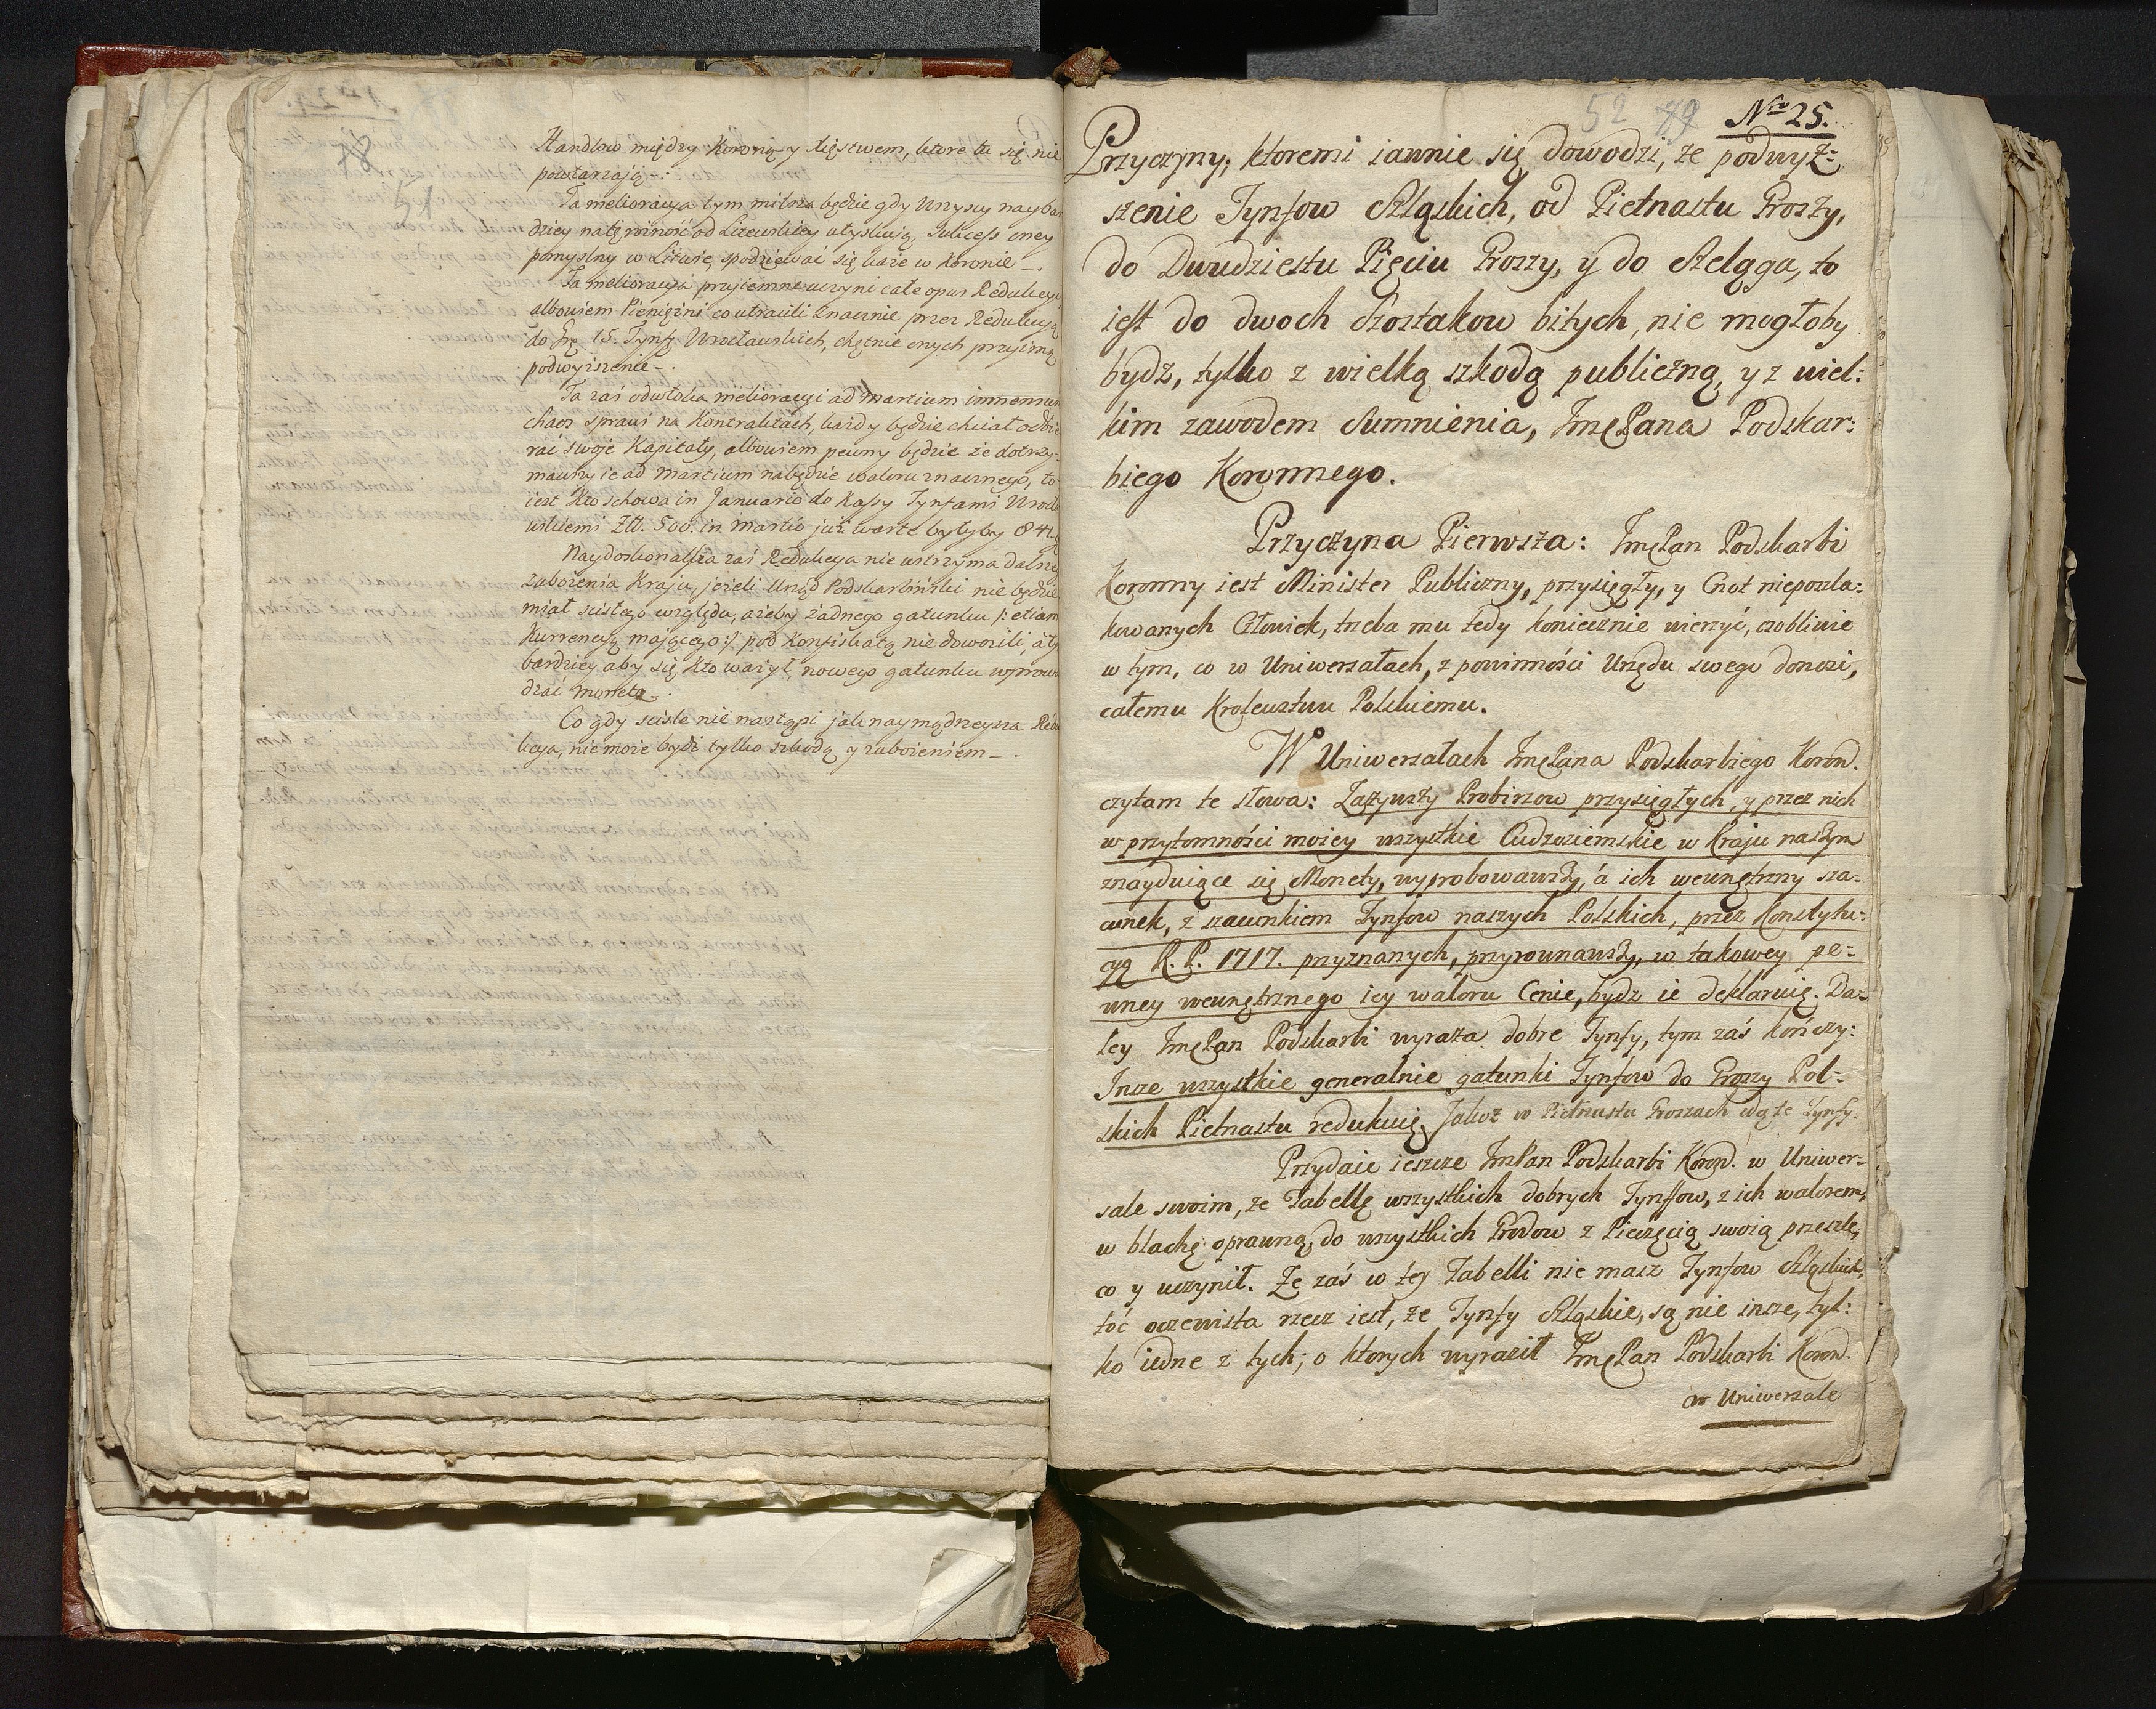 Handlow między Koroną y Xięstwem, ktore tu się nie
powtarzaią-:
Ta melioracya tym milsza będzie gdy Wszyscy naybar
dziey na od utyskuią, Sukcess oney
pomyslny w Litwie, spodziewać się każe w Koronie-.
Ta melioracya przyiemne uczyni całe opus Redukcyi
albowiem Pieniężni co utracili znacznie przez Redukcyą
do Gr. 15. Tynf. Wrocławskich, chętnie onych przyimą
podwyższenie-.
Ta zaś odwłoka melioracyi ad Martium immensum
chaos sprawi na Kontraktach, każdy będzie chciał odbie
rać swoje Kapitały, albowiem pewny będzie że dotrzy-
mawszy ie ad Martium nabędzie waloru znacznego, to
iest Kto schowa in Januario do Kassy Tynfami Wrocła
wskiemi Złł. 500. in Martio już warte byłyby 841.
Naydoskonalsza zaś Redukcya nie wstrzyma dalsze
zubożenia Kraju, jeżeli Urząd Podskarbiński nie będzie
miał scisłego względu, ażeby żadnego gatunku /: etiam
Kurrencyą maiącego :/ pod Konfiskatą nie dowozili, a ty
bardziey aby się kto ważył, nowego gatunku wprowa
dzać monetę-.
Co gdy sciśle nie nastąpi jak naymądrzeysza Redu
kcya, nie może bydź tylko szkodą y zubożeniem-.
51
52 79 Nro 25.
Przyczyny, ktoremi iawnie się dowodzi, że podwyż=
szenie Tynfow Szląskich, od Pietnastu Groszy,
do Dwudziestu Pięciu Groszy, y do Szeląga, to
iest do dwoch Szostakow bitych, nie mogłoby
bydz, tylko z wielką szkodą publiczną, y z wiel:
kim zawodem Sumnienia, JmcPana Podskar:
biego Koronnego.
Przyczyna Pierwsza: JmcPan Podskarbi
Koronny iest Minister Publiczny, przysięgły, y Cnot nieposzla:
kowanych Człowiek, trzeba mu tedy koniecznie wierzyć, osobliwie
w tym, co w Uniwersałach, z powinności Urzędu swego donosi,
całemu Krolewstwu Polskiemu.
W Uniwersałach JmcPana Podskarbiego Koron.
czytam te słowa: Zażywszy Probirzow przysięgłych, y przez nich
w przytomności moiey wszystkie Cudzoziemskie w Kraju naszym
znayduiące się Monety, wyprobowawszy, á ich wewnętrzny sza-
cunek, z szacunkiem Tynfow naszych Polskich, przez Konstytu:
cyą R. P. 1717. przyznanych, przyrownawszy, w takowey pe-
wney wewnętrznego icy waloru Cenie, bydz ie deklaruię. Da-
ley JmcPan Podskarbi wyraża dobre Tynfy, tym zaś kończy:
Insze wszystkie generalnie gatunki Tynfow do Groszy Pol-
skich Pietnastu redukuię. Jakoż w Pietnastu Groszach idą te Tynfy.
Przydaie ieszcze JmPan Podskarbi Koron. w Uniwer-
sale swoim, że Tabellę wszystkich dobrych Tynffow, z ich walorem,
w blachę oprawną, do wszystkich Grodow z Pieczęcią swoią przeszle,
co y uczynił. Że zaś w tey Tabelli nie masz Tynfow Szląskich,
toć oczewista rzecz iest, że Tynfy Szląskie, są nie insze, tyl:
ko iedne z tych, o ktorych wyraził JmcPan Podskarbi Koron.
w Uniwersale